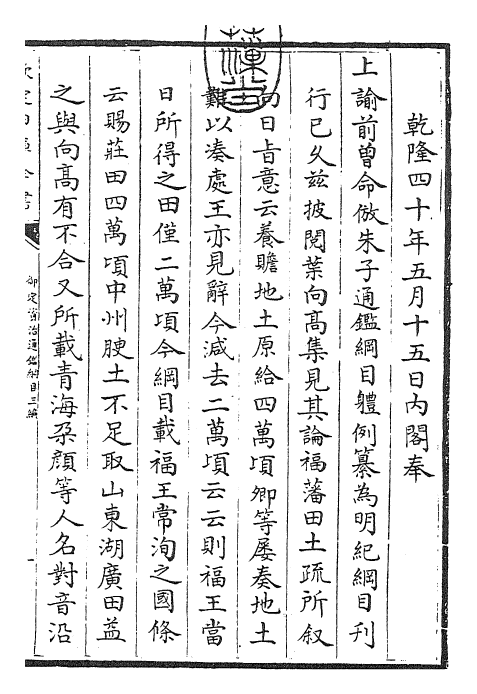 乾隆四十年五月十五日內閣奉
上諭前曾命倣朱子通鑑綱目體例纂為明紀綱目刊
行已乆兹披閱葉向髙集見其論福藩田土疏所叙
向日㫖意云養贍地土原給四萬頃卿等屢奏地土
難以凑處王亦見辭今減去二萬頃云云則福王當
日所得之田僅二萬頃今綱目載福王常洵之國條
云賜莊田四萬頃中州腴土不足取山東湖廣田益
之與向髙有不合又所載青海朶顔等人名對音沿
欽定四庫全書
御定資治通鑑綱目三編
一